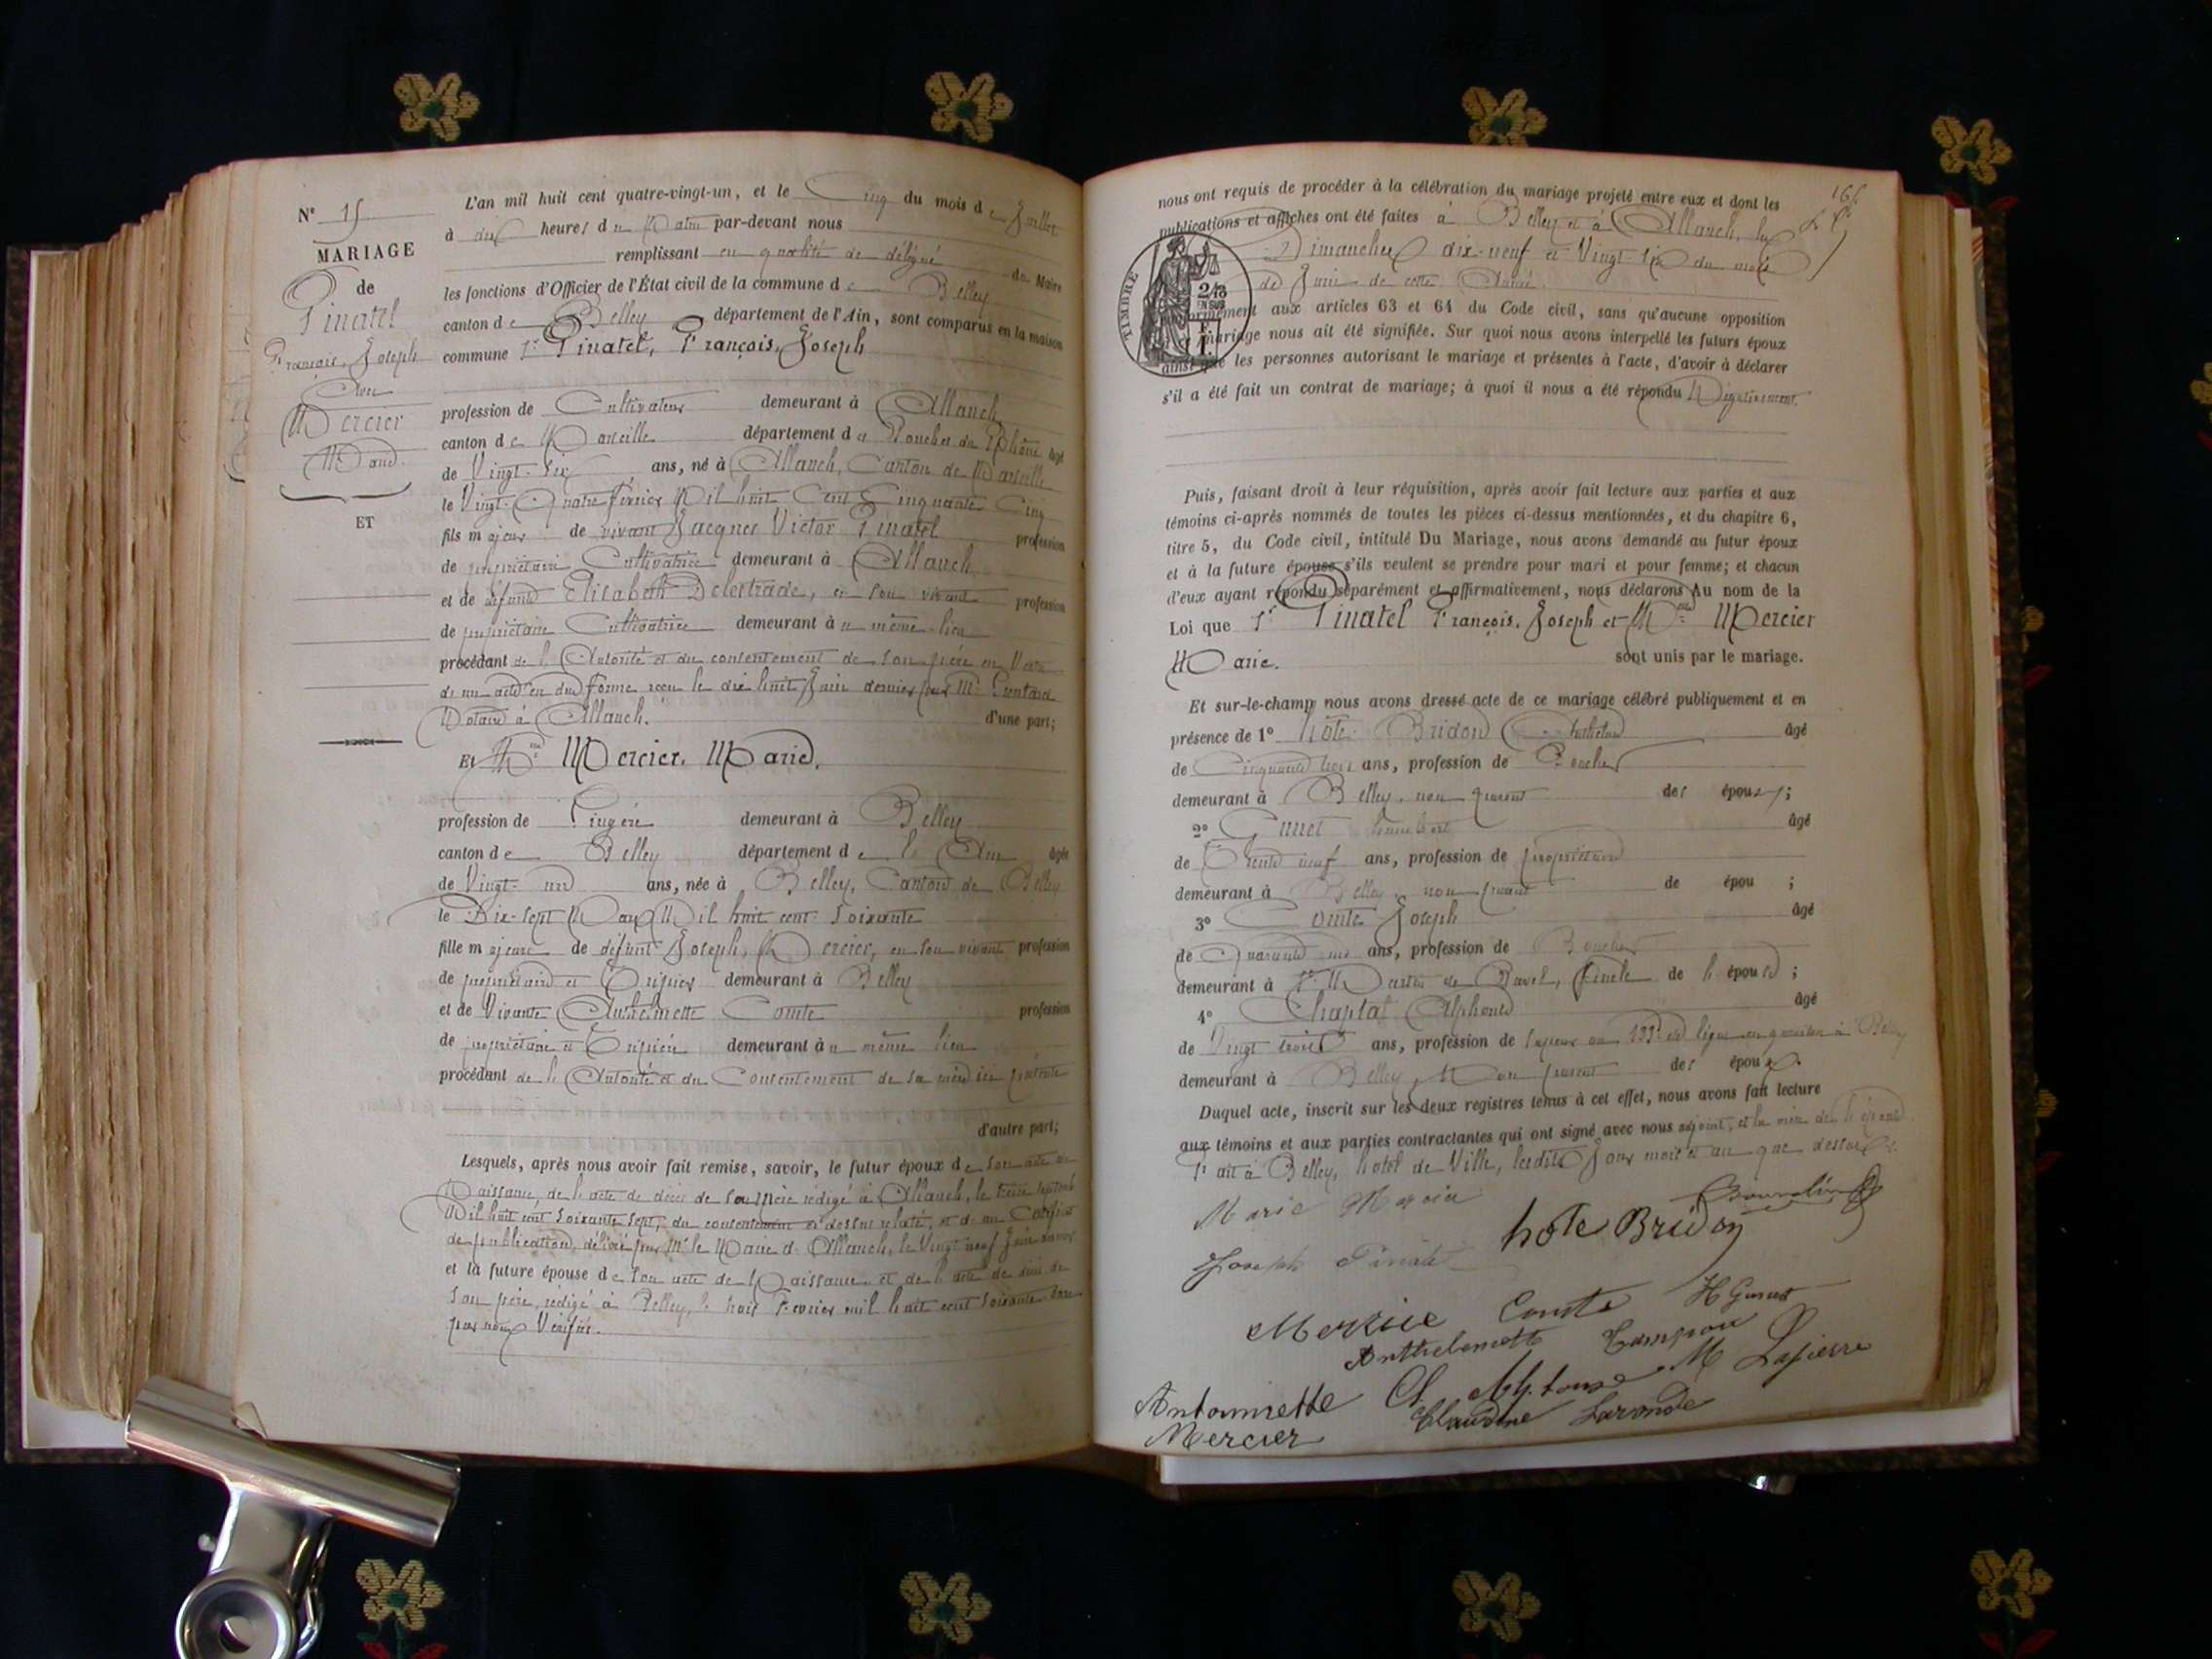 N° 15
MARIAGE
de
Pinatel
François, Joseph
Avec
Mercier
Marie.
ET
L'an mil huit cent quatre-vingt-un, et le Cinq du mois de Juillet
à dix heures du Matin par-devant nous
remplissant en qualité de délégué du Maire
les fonctions d'Officier de l'État civil de la commune de Belley
canton de Belley département de l'Ain, sont comparus en la maison
commune Sr Pinatel, François, Joseph
profession de Cultivateur demeurant à Allauch
canton de Marseille département des Bouches du Rhône âgé
de Vingt-Six ans, né à Allauch, Canton de Marseille
le Vingt-Quatre février Mil huit Cent Cinquante Cinq
fils majeur de vivant Jacques Victor Pinatel profession
de propriétaire Cultivatrice demeurant à Allauch
et de défunte Elisabeth Delestrade, en son vivant profession
de propriétaire Cultivatrice demeurant à u même lieu
procédant de l'Autorité et du consentement de son père en Vertu
d'un acte en due forme reçu le dix huit Juin dernier par Me
Notaire à Allauch. d'une part;
Et Mlle Mercier, Marie.
profession de Lingère demeurant à Belley
canton de Belley département de l'Ain âgée
de Vingt-un ans, née à Belley, Canton de Belley
le Dix-Sept Mars Mil huit cent soixante
fille majeure de défunt Joseph, Mercier, en son vivant profession
de propriétaire et demeurant à Belley
et de Vivante Anthelmette Comte profession
de propriétaire et demeurant à u même lieu
procédant de l'Autorité et du Consentement de sa mère ici présente
d'autre part;
Lesquels, après nous avoir fait remise, savoir, le futur époux de son acte de
Naissance, de l'acte de décès de sa mère rédigé à Allauch, le treize septembre
Mil huit cent soixante sept, du consentement ci dessus relaté, et d'un Certificat
de publication, délivré par Mr le Maire d'Allauch, le Vingt neuf Juin
et la future épouse de son acte de Naissance et de l'acte de décès de
son père, rédigé à Belley, le trois Février mil huit cent soixante
par nous Vérifiés.
165
nous ont requis de procéder à la célébration du mariage projeté entre eux et dont les
publications et affiches ont été faites à Belley et à Allauch, les
Dimanches dix-neuf et Vingt-Six du mois
de Juin de cette Année.
TIMBRE
2/10
EN SUS
conformément aux articles 63 et 64 du Code civil, sans qu'aucune opposition
mariage nous ait été signifiée. Sur quoi nous avons interpellé les futurs époux
ainsi que les personnes autorisant le mariage et présentes à l'acte, d'avoir à déclarer
s'il a été fait un contrat de mariage; à quoi il nous a été répondu Négativement.
Puis, faisant droit à leur réquisition, après avoir fait lecture aux parties et aux
témoins ci-après nommés de toutes les pièces ci-dessus mentionnées, et du chapitre 6,
titre 5, du Code civil, intitulé Du Mariage, nous avons demandé au futur époux
et à la future épouse s'ils veulent se prendre pour mari et pour femme; et chacun
d'eux ayant répondu séparément et affirmativement, nous déclarons Au nom de la
Loi que Sr Pinatel François, Joseph et Mlle Mercier
Marie. sont unis par le mariage.
Et sur-le-champ nous avons dressé acte de ce mariage célébré publiquement et en
présence de 1° hôte-Bridon âgé
de Cinquante trois ans, profession de Cocher
demeurant à Belley, non parent des époux;
2° Humbert âgé
de Trente neuf ans, profession de propriétaire
demeurant à Belley, non parent de épou ;
3° Comte Joseph âgé
de Quarante un ans, profession de Boucher
demeurant à St Martin de Bavel, Oncle de l'épouse;
4° Chaptal Alphonse âgé
de Vingt trois ans, profession de Sapeur au 133e de ligne en garnison à Belley
demeurant à Belley, Non parent des époux.
Duquel acte, inscrit sur les deux registres tenus à cet effet, nous avons fait lecture
aux témoins et aux parties contractantes qui ont signé avec nous adjoint, et la mère de l'épouse.
Fait à Belley, hôtel de Ville, lesdits Jour mois et an que dessus.
Marie
hote Bridon
Joseph Pinatel
Comte
Anthelmette
Antoinette
Mercier
Claudine
M Lapierre